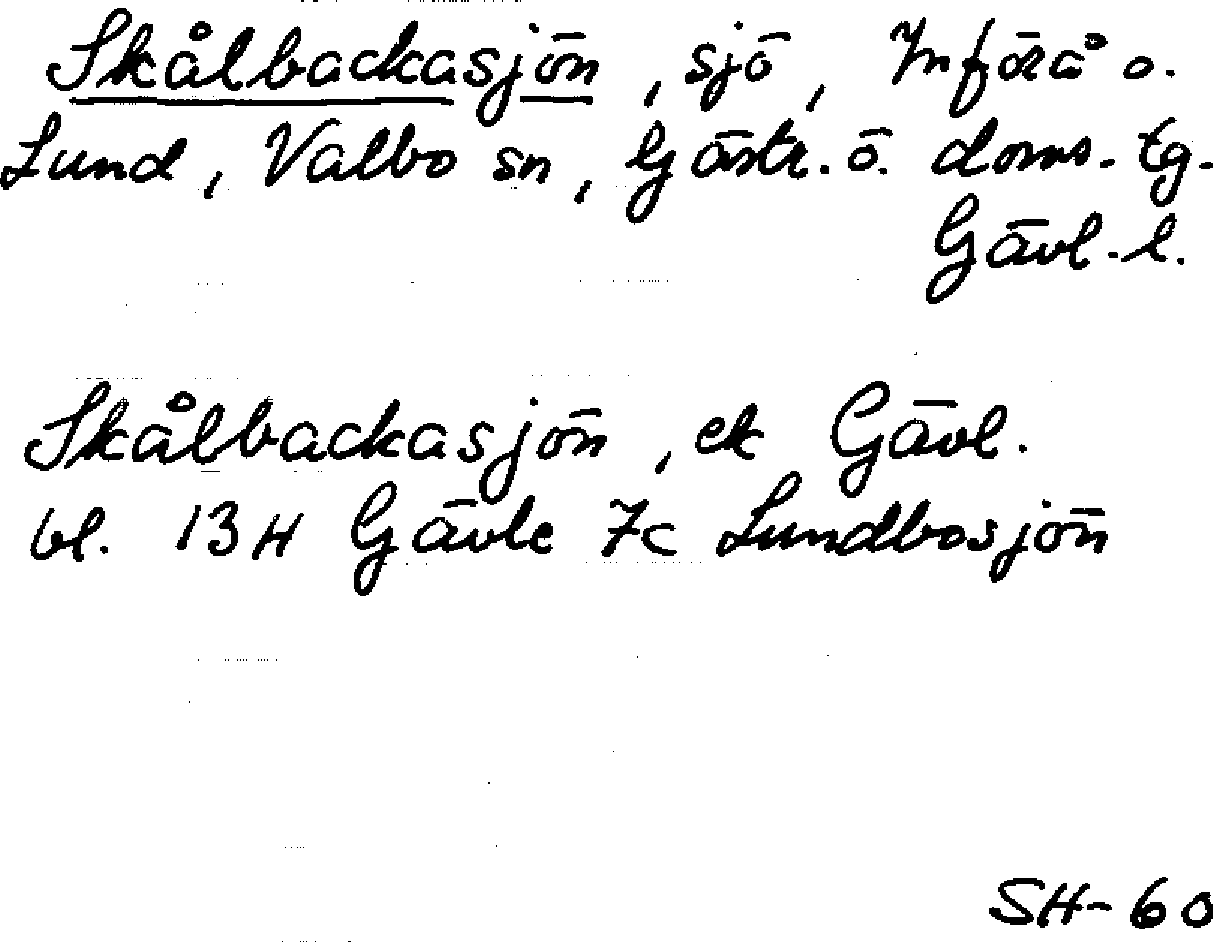 Skålbackasjön, sjö, Införå o.
Lund, Valbo sn, Gästr. ö. doms. tg.
Gävl. l.
Skålbackasjön, ek Gävl.
bl. 13H Gävle 7c Lundbosjön
SH-60